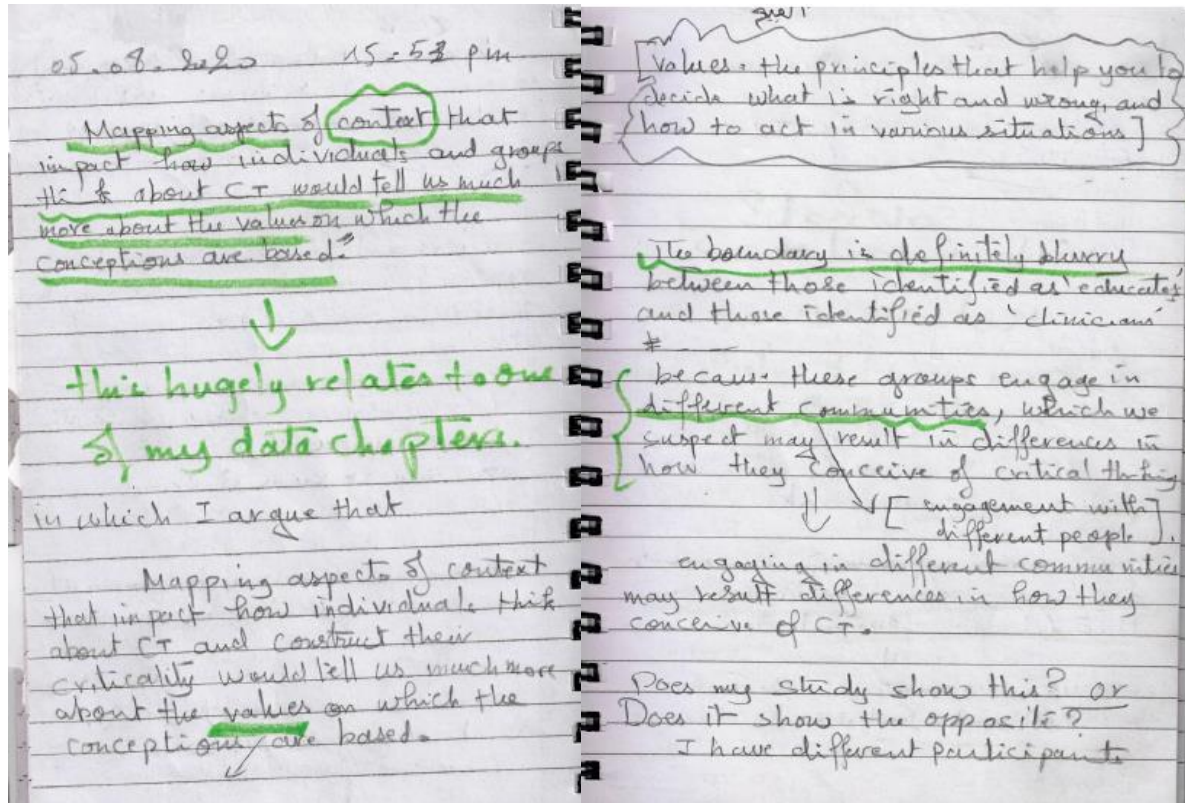 05.08.2020 15:53 pm
Mapping aspects of context that
impact how individuals and groups
think about CT would tell us much
more about the values on which the
conceptions are based."
this hugely relates to one
of my data chapters.
in which I argue that
Mapping aspects of context
that impact how individuals thik
about CT and construct their
criticality would tell us much more
about the values on which the
conceptions are based.
القيم
[values. the principles that help you to
decide what is right and wrong, and
how to act in various situations]
The boundary is definitely blurry
between those identified as 'educates'
and those identified as 'clinicians'
*
because these groups engage in
different communities, which we
suspect may result in differences in
how they conceive of critical thking
[engagement with
different people].
engaging in different communities
may result differences in how they
conceive of CT.
Does my study show this? or
Does it show the opposite?
I have different participants